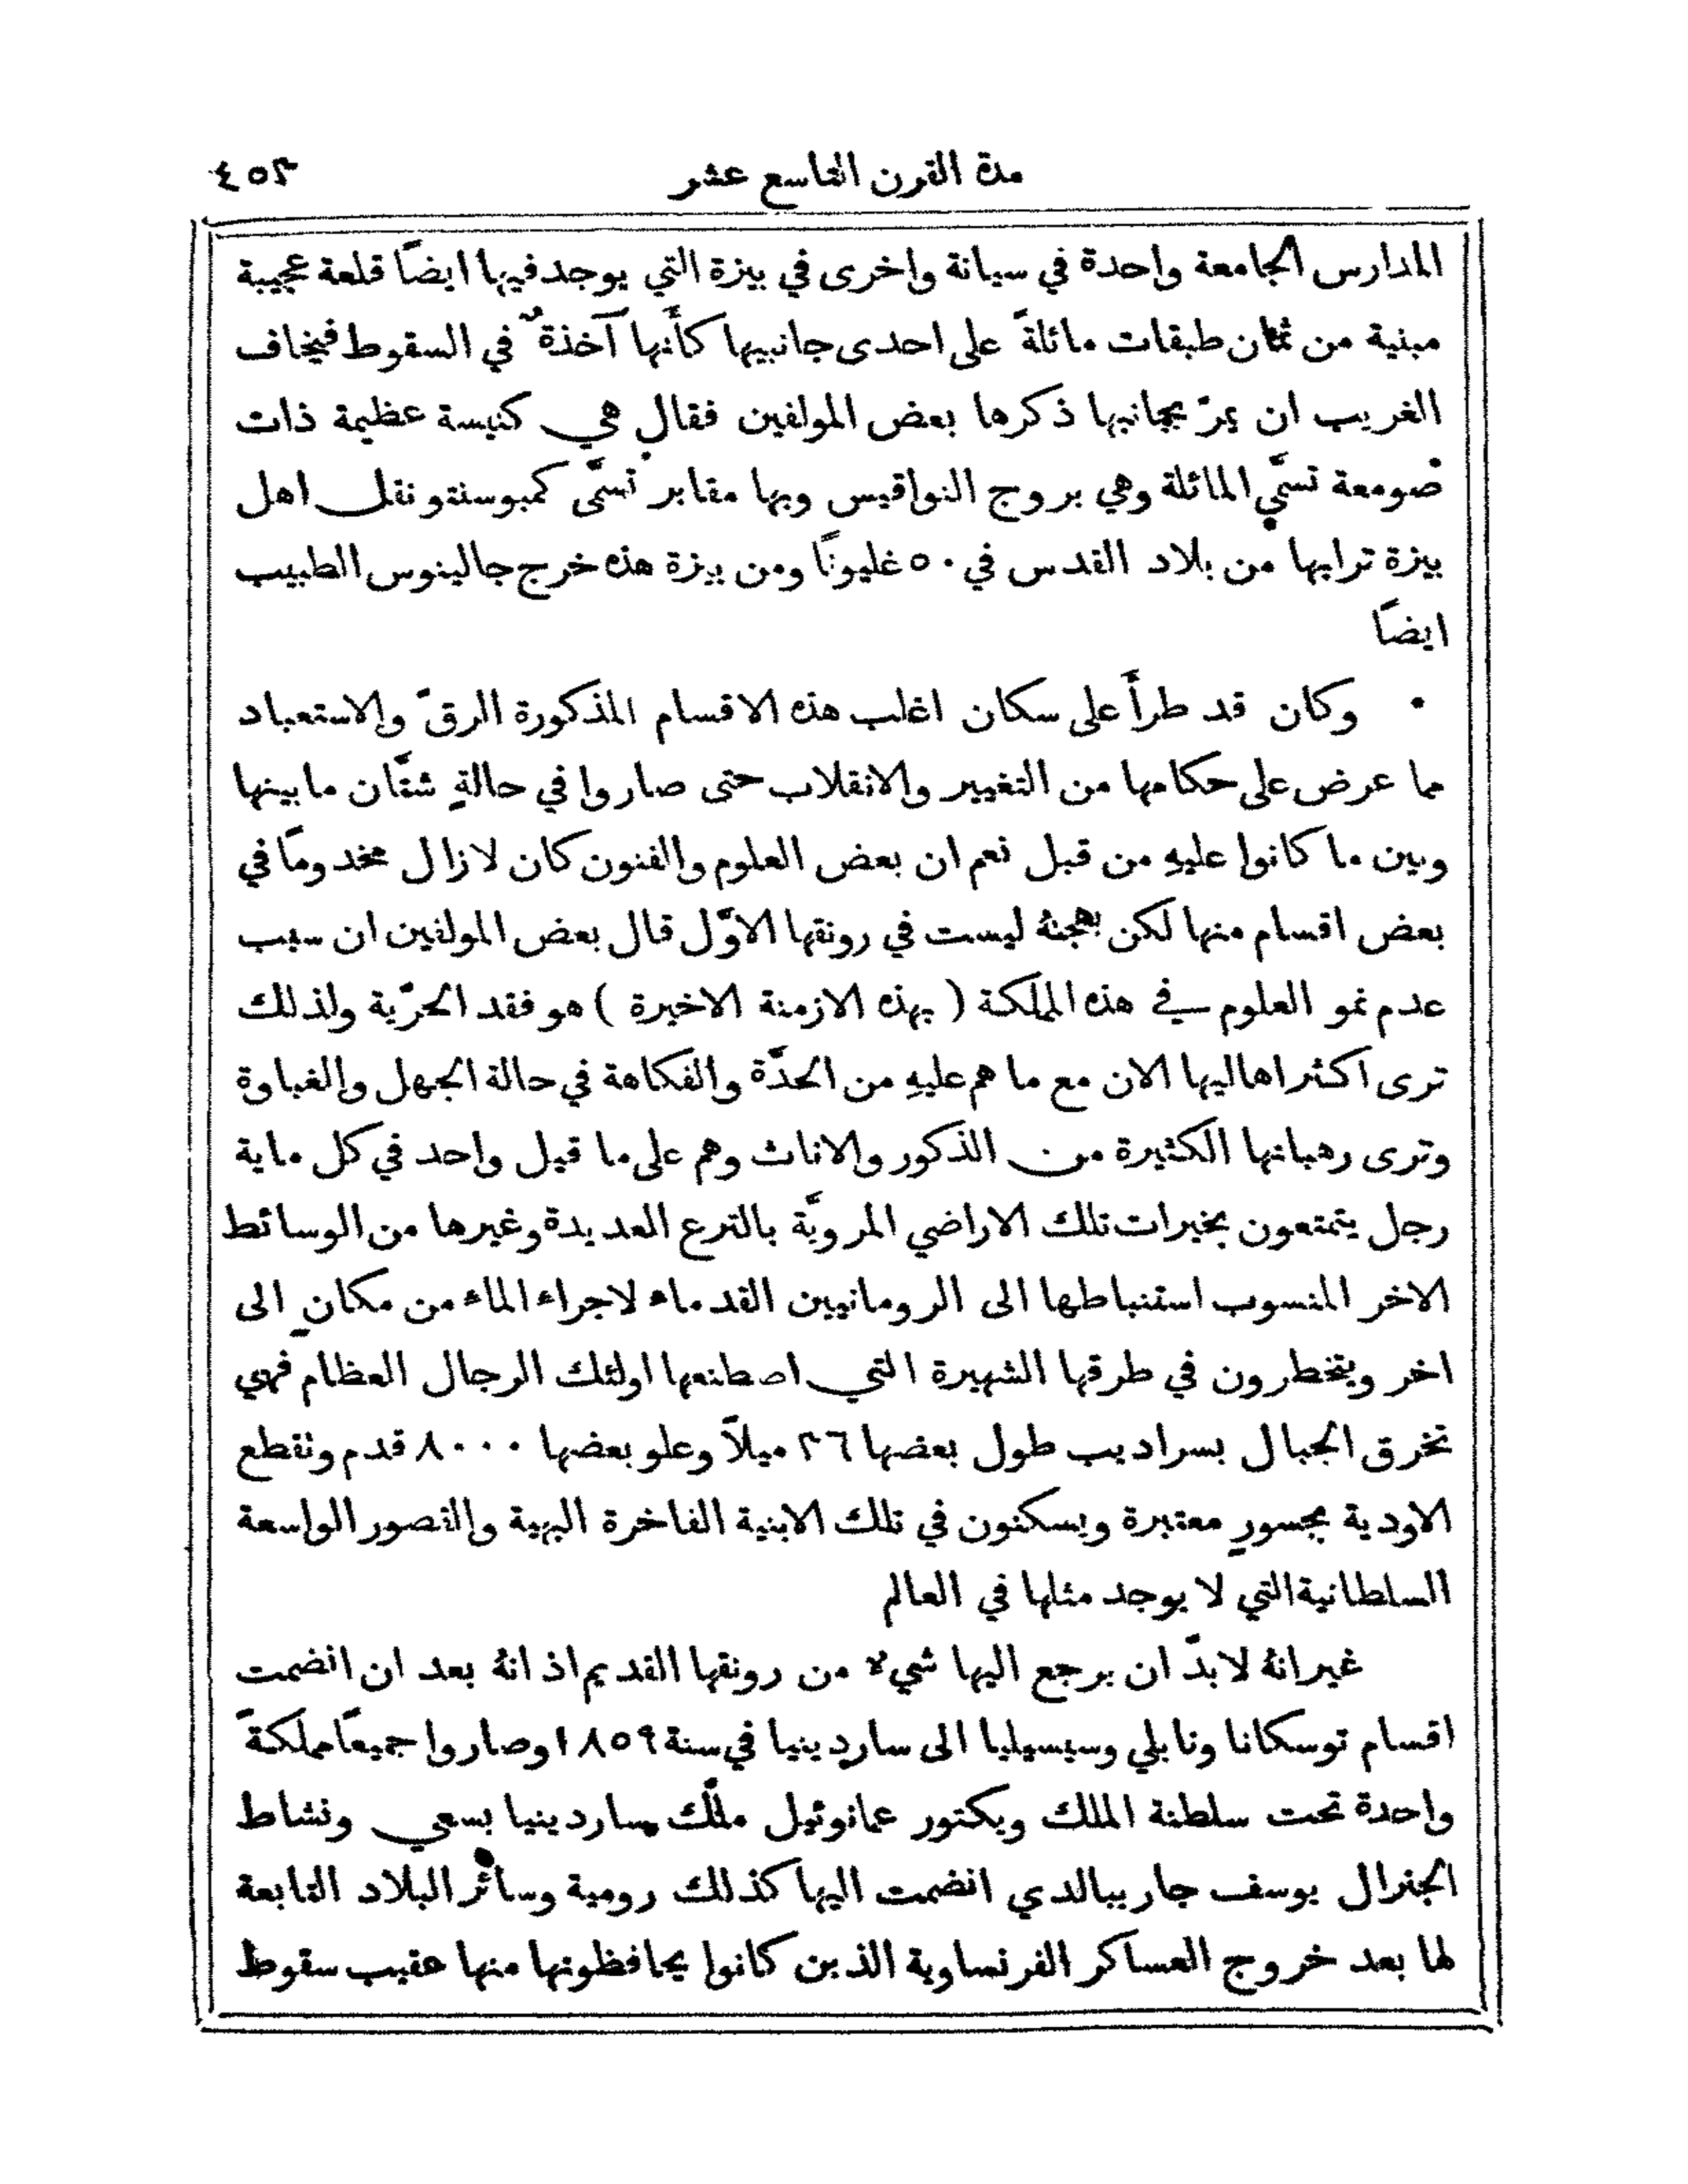 مدة القرن التاسع عشر ٤٥٣
المدارس الجامعة واحدة في سيانة واخرى في بيزة التي يوجد فيها ايضًا قلعة عجيبة
مبنية من ثمان طبقات مائلةً على احدى جانبيها كأنها آخذةٌ في السقوط فيخاف
الغريب ان يمرّ بجانبها ذكرها بعض المولفين فقال هي كنيسة عظيمة ذات
صومعة تسمَّى المائلة وهي بروج النواقيس وبها مقابر تسمَّى كمبوسنتو نقل اهل
بيزة ترابها من بلاد القدس في ٥٠ غليونًا ومن بيزة هذه خرج جالينوس الطبيب
ايضًا
وكان قد طرأَ على سكان اغلب هذه الاقسام المذكورة الرقّ والاستعباد
مما عرض على حكامها من التغيير والانقلاب حتى صاروا في حالةٍ شتَّان ما بينها
وبين ما كانوا عليهِ من قبل نعم ان بعض العلوم والفنون كان لازال مخدومًا في
بعض اقسام منها لكن بهجتهُ ليست في رونقها الاوَّل قال بعض المولفين ان سبب
عدم نمو العلوم في هذه المملكة ( بهذه الازمنة الاخيرة ) هو فقد الحرّية ولذلك
ترى اكثر اهاليها الان مع ما هم عليهِ من الحدَّة والفكاهة في حالة الجهل والغباوة
وترى رهبانها الكثيرة من الذكور والاناث وهم على ما قيل واحد في كل ماية
رجل يتمتعون بخيرات تلك الاراضي المرويَّة بالترع العديدة وغيرها من الوسائط
الاخر المنسوب استنباطها الى الرومانيين القدماء لاجراء الماء من مكانٍ الى
اخر ويتخطرون في طرقها الشهيرة التي اصطنعها اولئك الرجال العظام فهي
تخرق الجبال بسراديب طول بعضها ٢٦ ميلاً وعلو بعضها ٨٠٠٠ قدم وتقطع
الاودية بجسورٍ معتبرة ويسكنون في تلك الابنية الفاخرة البهية والقصور الواسعة
السلطانية التي لا يوجد مثلها في العالم
غير انهُ لا بدّ ان يرجع اليها شيء من رونقها القديم اذ انهُ بعد ان انضمت
اقسام توسكانا ونابلي وسيسيليا الى ساردينيا في سنة ١٨٥٩ وصاروا جميعًا مملكةً
واحدة تحت سلطنة الملك ويكتور عمانوئيل ملك ساردينيا بسعي ونشاط
الجنرال يوسف جاريبالدي انضمت اليها كذلك رومية وسائر البلاد التابعة
لها بعد خروج العساكر الفرنساوية الذين كانوا يحافظونها منها عقيب سقوط